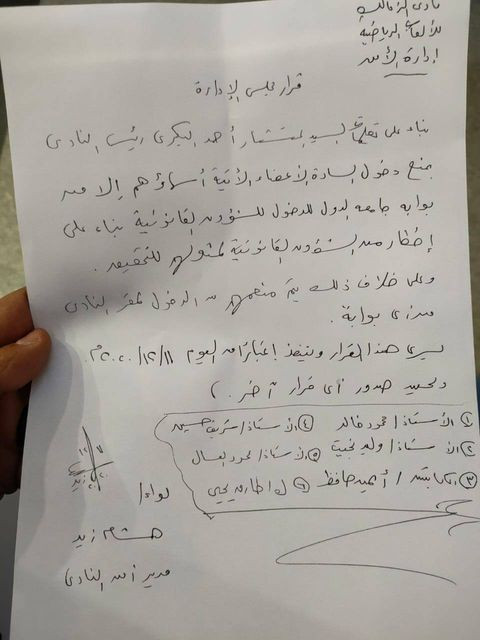 نادي الزمالك
للألعاب الرياضية
إدارة الأمن
قرار مجلس الإدارة
بناء على تعليمات السيد المستشار أحمد البكري رئيس النادي
بمنع دخول السادة الأعضاء الآتية أسماؤهم إلا من
بوابه جامعه الدول للدخول للشؤون القانونية بناء على
إخطار من الشؤون القانونية لمثولهم للتحقيق.
وعلى خلاف ذلك يتم منعهم من الدخول لمقر النادي
من أي بوابة.
يسري هذا القرار وينفذ اعتبارا من اليوم ١١/١٢/٢٠٢٠م.
ولحين صدور أي قرار آخر.
١ الأستاذ/ محمود خالد ٤ الأستاذ/ شريف حسين
٢ الأستاذ/ وليد نجيب ٥ الأستاذ/ محمود العسال
٣ / أحمد حافظ ٦ / طارق يحيى
لواء/
هشام زيد
مدير أمن النادي